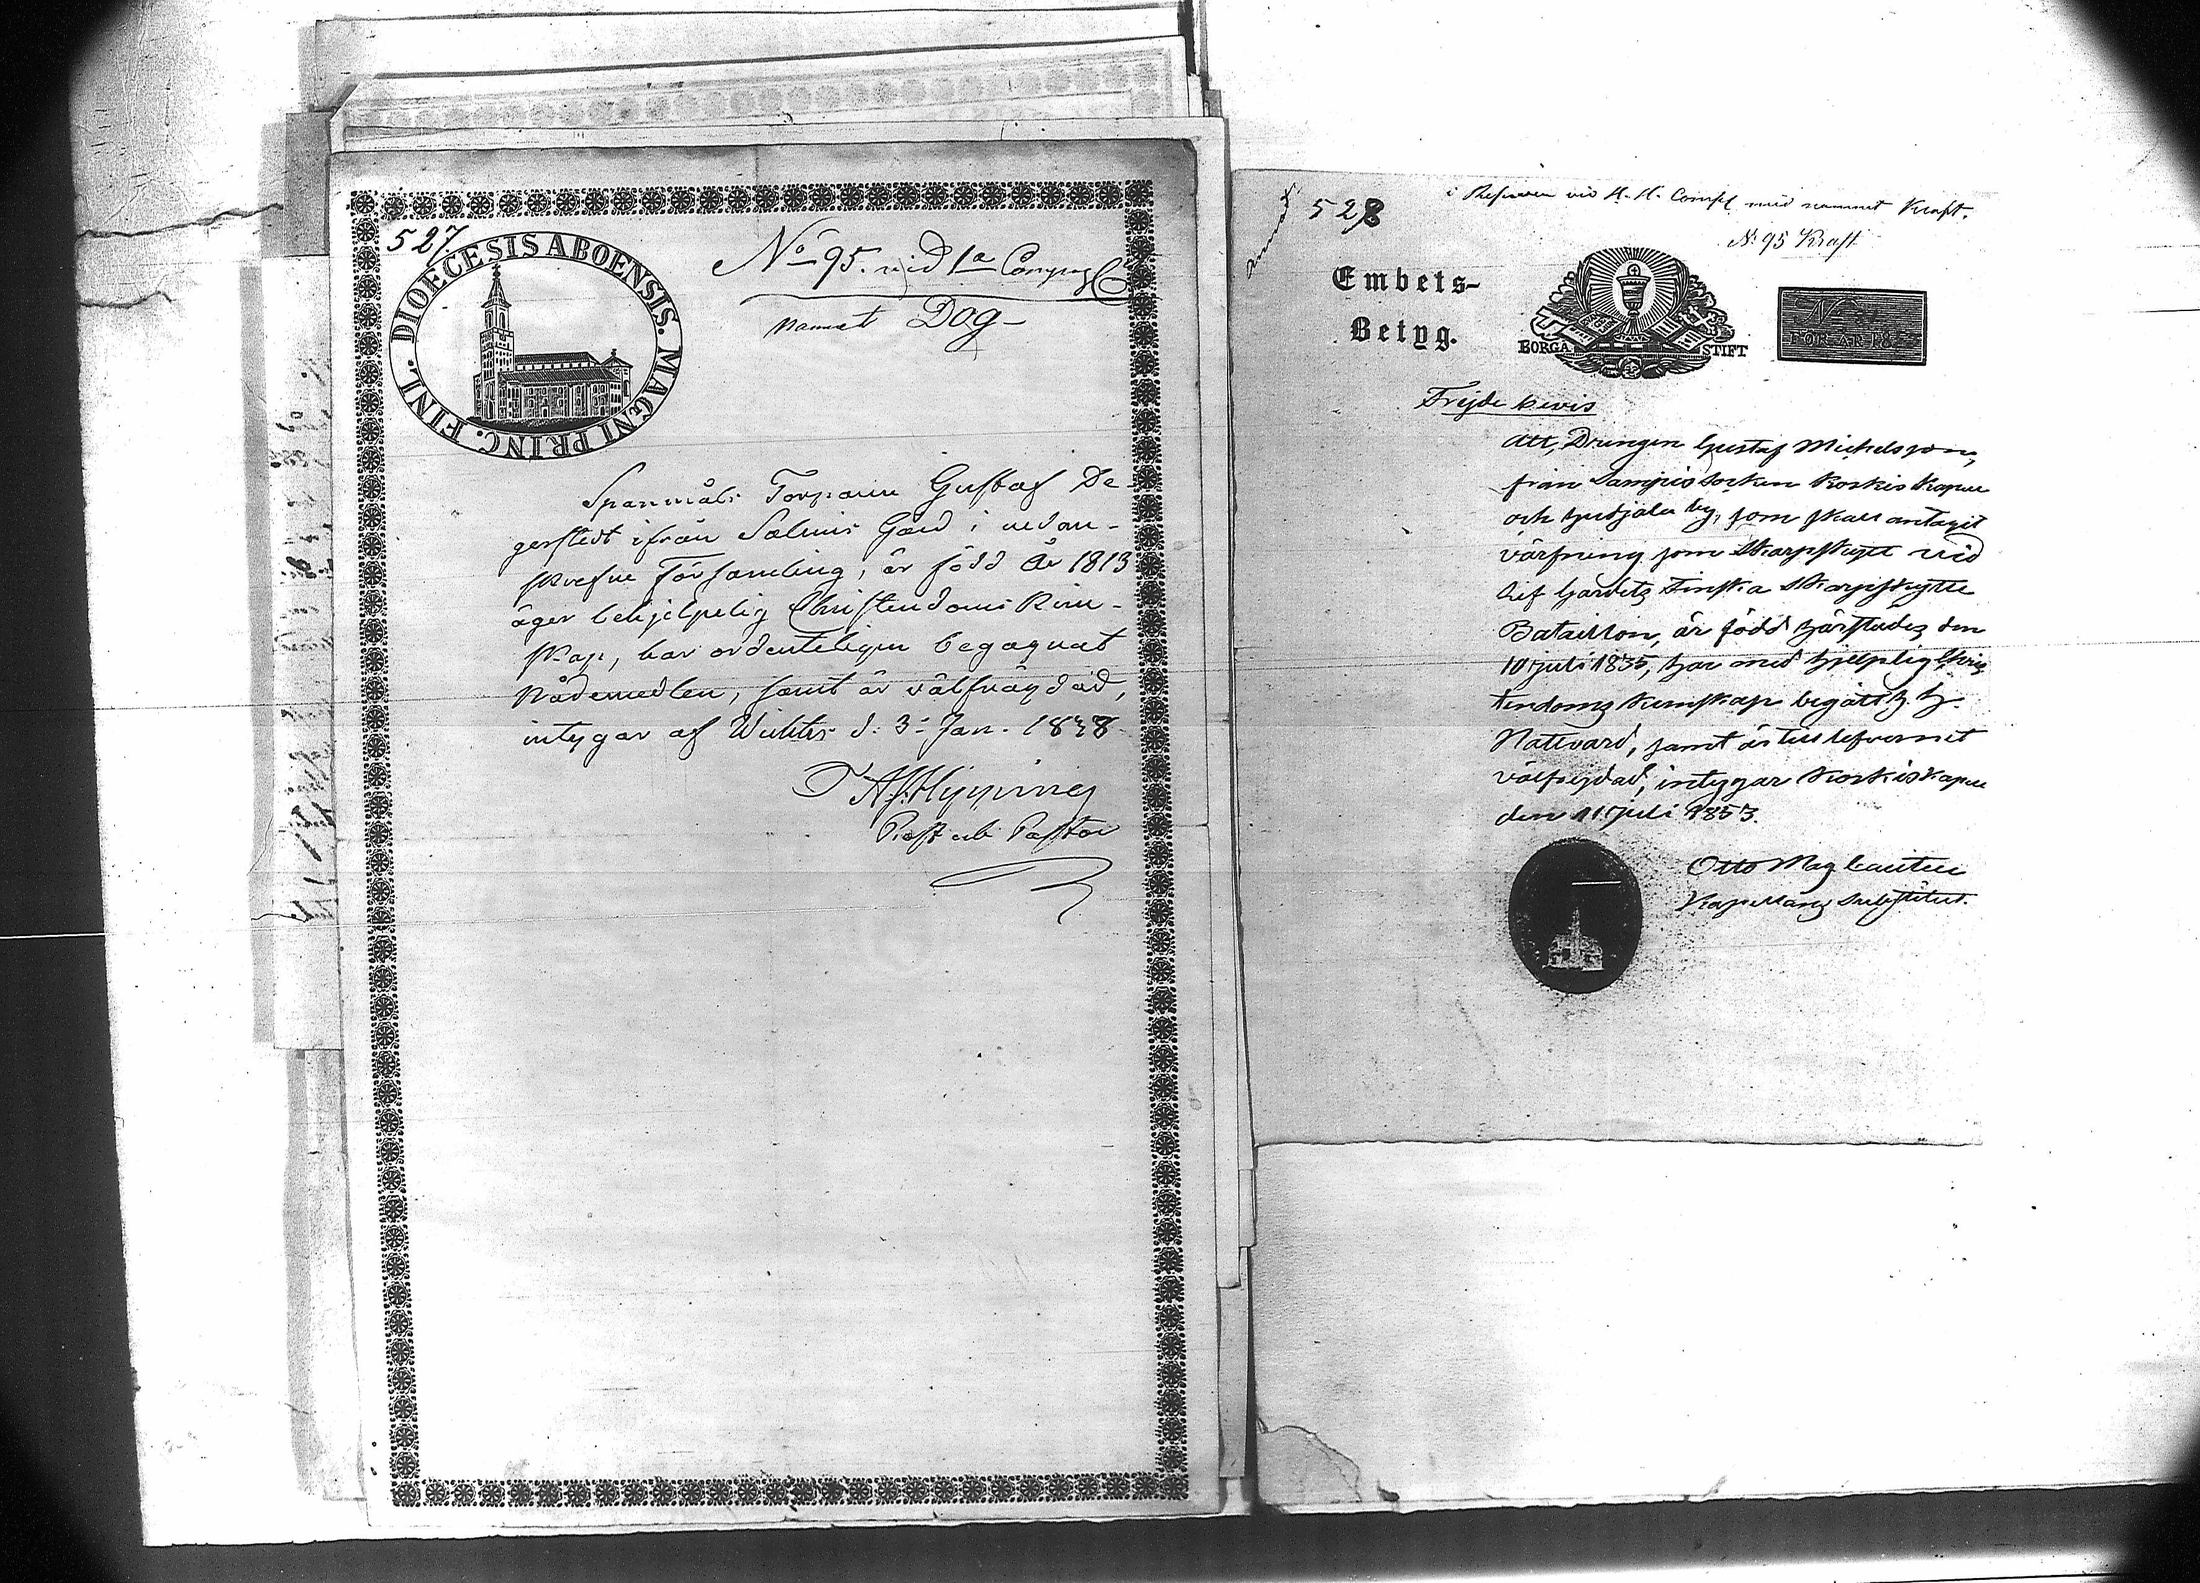 527
DIOECESIS ABOENSIS. MAGNI PRINC. FINL.
No 95. vid 1a Compag
namnet Dog
Spanmåls Torparen Gustaf De-
gerstedt ifrån Salmis Gård i nedan-
skrefne Församling, är född år 1813
äger behjelpelig Christendoms Kun-
skap, har ordenteligen begagnat
Nådemedlen, samt är välfräjdad,
intygar af Wichtis d: 3 Jan. 1838
A.J. Hipping
Prost och Pastor
528
i Reserven vid H. H. Comp med namnet Kraft.
No 95 Kraft
Embets-
Betyg.
BORGÅ STIFT
No
FÖR ÅR 18
Frejde bevis
Att, Drengen Gustaf Michelsson,
från Lampis Socken Koskis Kapell
och by, som skall antagit
värfning som Skarpskytt vid
Lif Gardets Finska Skarpskytte
Bataillon, är född härstädes den
10 juli 1835, har med hjelplig Chris
tendoms Kunskap begått h. h.
Nattvard, samt är till lefvernet
välfrejdad, intygar Koskis Kapell
den 11 juli 1853.
Otto Mag
Kapellans Substitut.